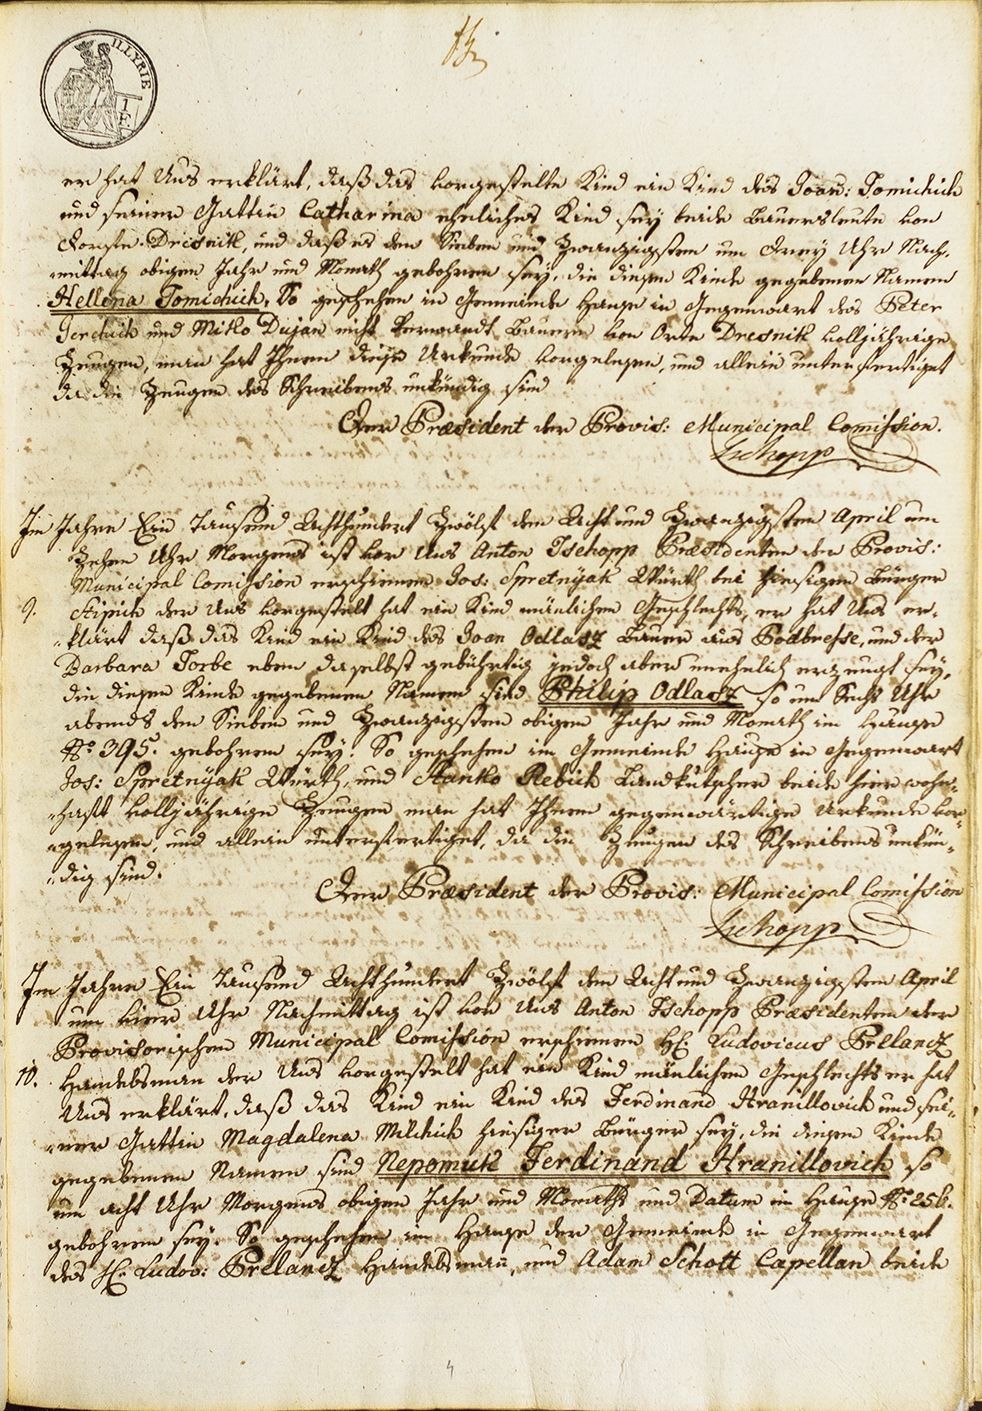 ILLYRIE
1
F
er hat Uns erklärt, daß das vorgestelte Kind ein Kind des Joan: Tomichich
und seiner Gattin Catharina eheliches Kind sey beide Bauersleute von
Dresnik, und daß es den Sieben und Zwanzigsten um Uhr Nach-
mittag obigen Jahr und Monath gebohren sey, die diesen Kinde gegebenen Namen
Hellena Tomichich, So geschehen in Gemeinde Hause in Gegenwart des Peter
Jerchich und Mitto Dujan nicht verwandt Bauern von Orte Dresnik volljährige
Zeugen, man hat Ihnen diese Urkunde vorgelesen, und allein unterfertiget
da die Zeugen des Schreibens unkündig sind
Der Præsident der Provis: Municipal Comission.
Tschopp
Im Jahre Ein Tausend Achthundert Zwölf den Acht und Zwanzigsten April um
Zehen Uhr Morgens ist vor Uns Anton Tschopp Præsidenten der Provis:
Municipal Comission erschienen Jos: Spretnyak Würth bei hiesigen Bürger
9. der Uns vorgestelt hat ein Kind mänlichen Geschlechts, er hat Uns er-
klärt daß das Kind ein Kind des Joan Odlasz Bauer aus Podbresse, und der
Barbara Torbe eben daselbst gebührtig jedoch aber unehelich erzeugt sey,
die diesen Kinde gegebenen Namen sind Philip Odlasz so um Sechs Uhr
abends den Sieben und Zwanzigsten obigen Jahr und Monath im Hause
No 395. gebohren sey. So geschehen im Gemeinde Hause in Gegenwart
Jos: Spretnyak Würth, und Stanko Rebich Landkutscher beide hier wohn-
haft volljährige Zeugen man hat Ihnen gegenwärtige Urkunde vor-
gelesen, und allein unterfertiget, da die Zeugen des Schreibens unkün-
dig sind.
Der Præsident der Provis: Municipal Comission
Tschopp
Im Jahre Ein Tausend Achthundert Zwölf den Acht und Zwanzigsten April
um vier Uhr Nachmittag ist vor Uns Anton Tschopp Præsidenten der
Provisorischen Municipal Comission erschienen H: Ludovicus Prelancz
10. Handelsman der Uns vorgestelt hat ein Kind mänlichen Geschlechts er hat
Uns erklärt, daß das Kind ein Kind des Ferdinand Hranillovich und sei-
ner Gattin Magdalena Milchich hiesiger Bürger sey, die diesen Kinde
gegebenen Namen sind Nepomuk Ferdinand Hranillovich so
um acht Uhr Morgens obigen Jahr und Monaths und Datum im Hause No 256.
gebohren sey. So geschehen im Hause der Gemeinde in Gegenwart
des H: Ludov: Prelancz Handelsman, und Adam Schott Capellan beide